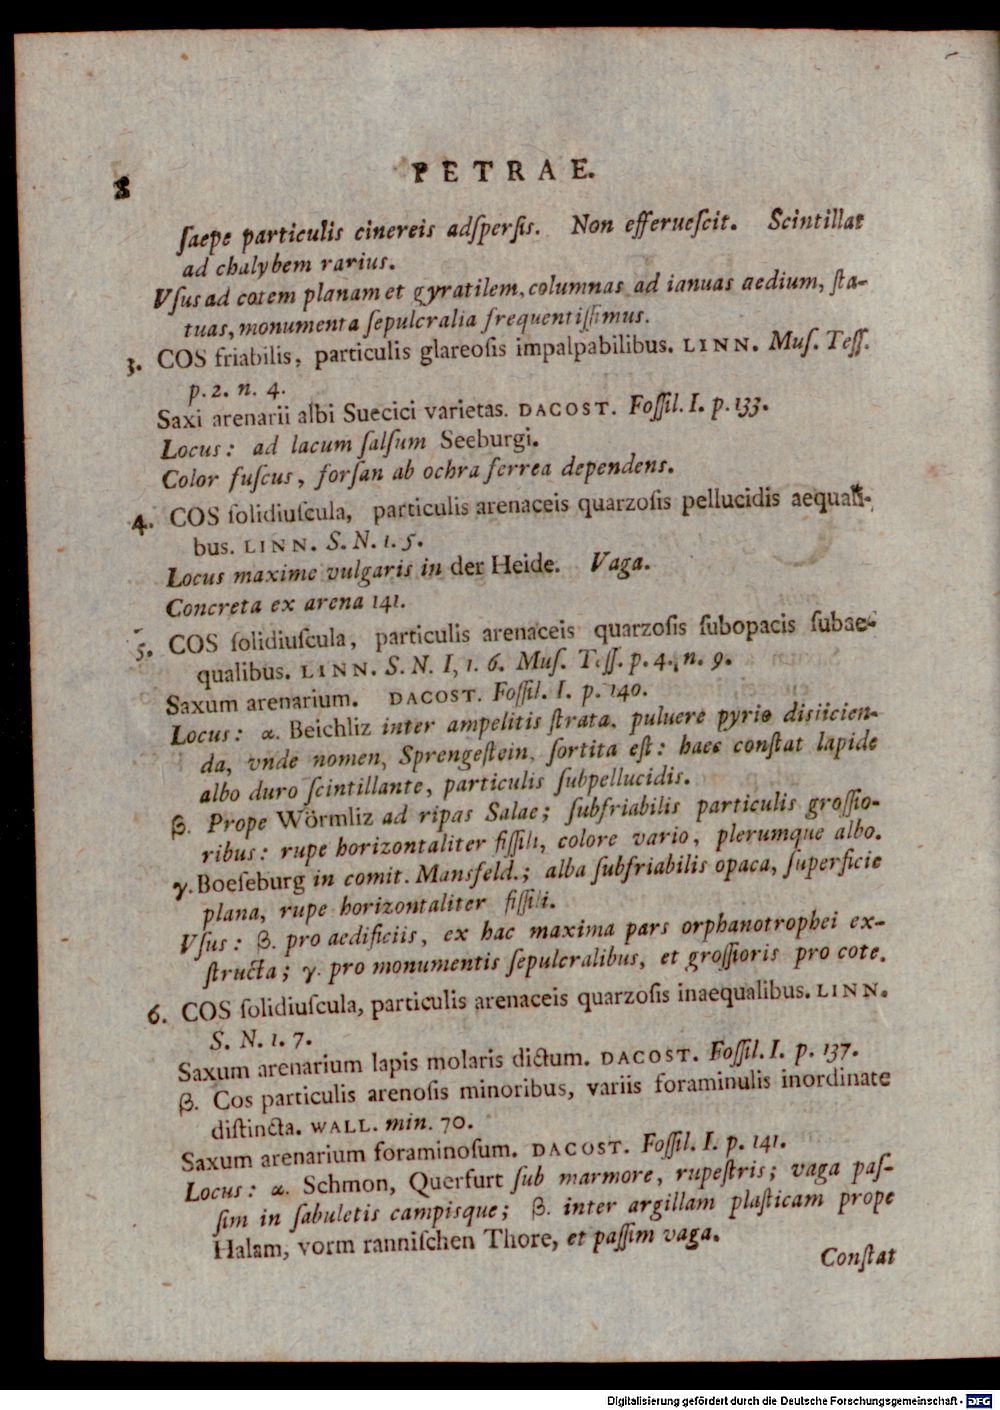 8
PETRAE.
ſaepe particulis cinereis adſperſis. Non efferueſcit. Scintillat
ad chalybem rarius.
Vſus ad cotem planam et gyratilem, columnas ad ianuas aedium, ſta-
tuas, monumenta ſepulcralia frequentiſſimus.
3. COS friabilis, particulis glareoſis impalpabilibus. LINN. Muſ. Teſſ.
p. 2. n. 4.
Saxi arenarii albi Suecici varietas. DACOST. Foſſil. I. p. 133.
Locus: ad lacum ſalſum Seeburgi.
Color fuſcus, forſan ab ochra ferrea dependens.
4. COS ſolidiuſcula, particulis arenaceis quarzoſis pellucidis aequali-
bus. LINN. S. N. 1. 5.
Locus maxime vulgaris in der Heide. Vaga.
Concreta ex arena 141.
5. COS ſolidiuſcula, particulis arenaceis quarzoſis ſubopacis ſubae-
qualibus. LINN. S. N. I, 1. 6. Muſ. Teſſ. p. 4., n. 9.
Saxum arenarium. DACOST. Foſſil. I. p. 140.
Locus: α. Beichliz inter ampelitis ſtrata, puluere pyrio disiicien-
da, vnde nomen, Sprengeſtein, ſortita eſt: haec conſtat lapide
albo duro ſcintillante, particulis ſubpellucidis.
β. Prope Wörmliz ad ripas Salae; ſubfriabilis particulis groſſio-
ribus: rupe horizontaliter fiſſili, colore vario, plerumque albo.
γ. Boeſeburg in comit. Mansfeld.; alba ſubfriabilis opaca, ſuperficie
plana, rupe horizontaliter fiſſili.
Vſus: β. pro aedificiis, ex hac maxima pars orphanotrophei ex-
ſtructa; γ. pro monumentis ſepulcralibus, et groſſioris pro cote.
6. COS ſolidiuſcula, particulis arenaceis quarzoſis inaequalibus. LINN.
S. N. 1. 7.
Saxum arenarium lapis molaris dictum. DACOST. Foſſil. I. p. 137.
β. Cos particulis arenoſis minoribus, variis foraminulis inordinate
diſtincta. WALL. min. 70.
Saxum arenarium foraminoſum. DACOST. Foſſil. I. p. 141.
Locus: α. Schmon, Querfurt ſub marmore, rupeſtris; vaga paſ-
ſim in ſabuletis campisque; β. inter argillam plaſticam prope
Halam, vorm ranniſchen Thore, et paſſim vaga.
Conſtat
Digitalisierung gefördert durch die Deutsche Forschungsgemeinschaft - DFG